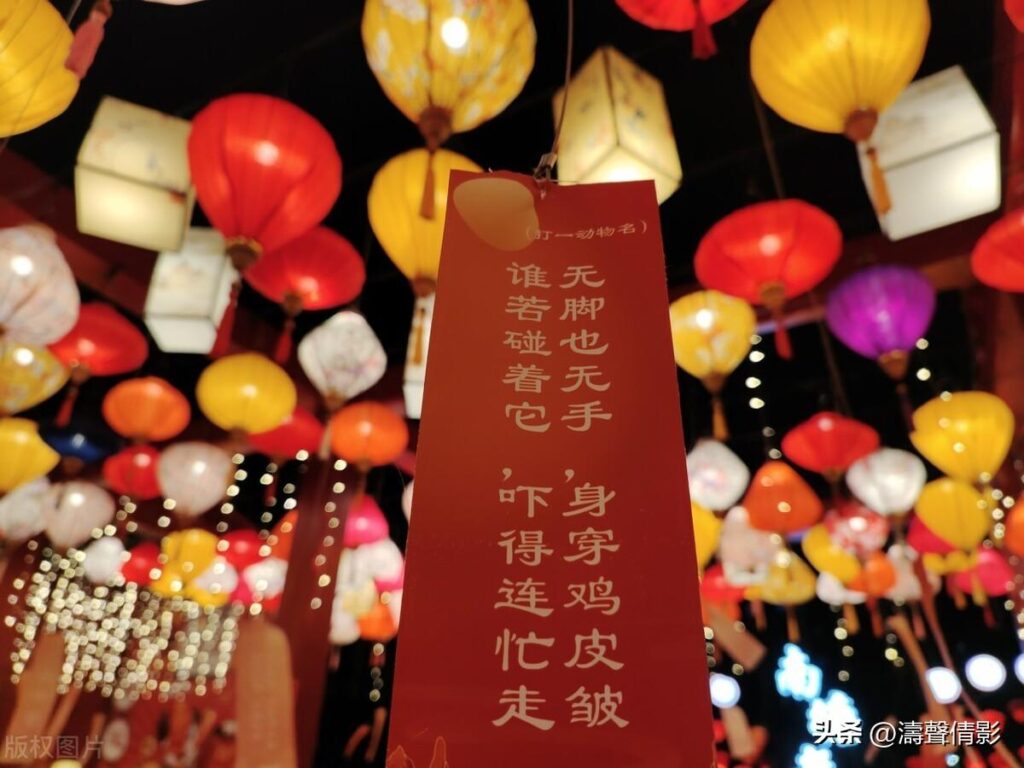 (打一动物名)
无脚也无手,身穿鸡皮皱
谁若碰着它,吓得连忙走
南
头条 @濤聲倩影
版权图片